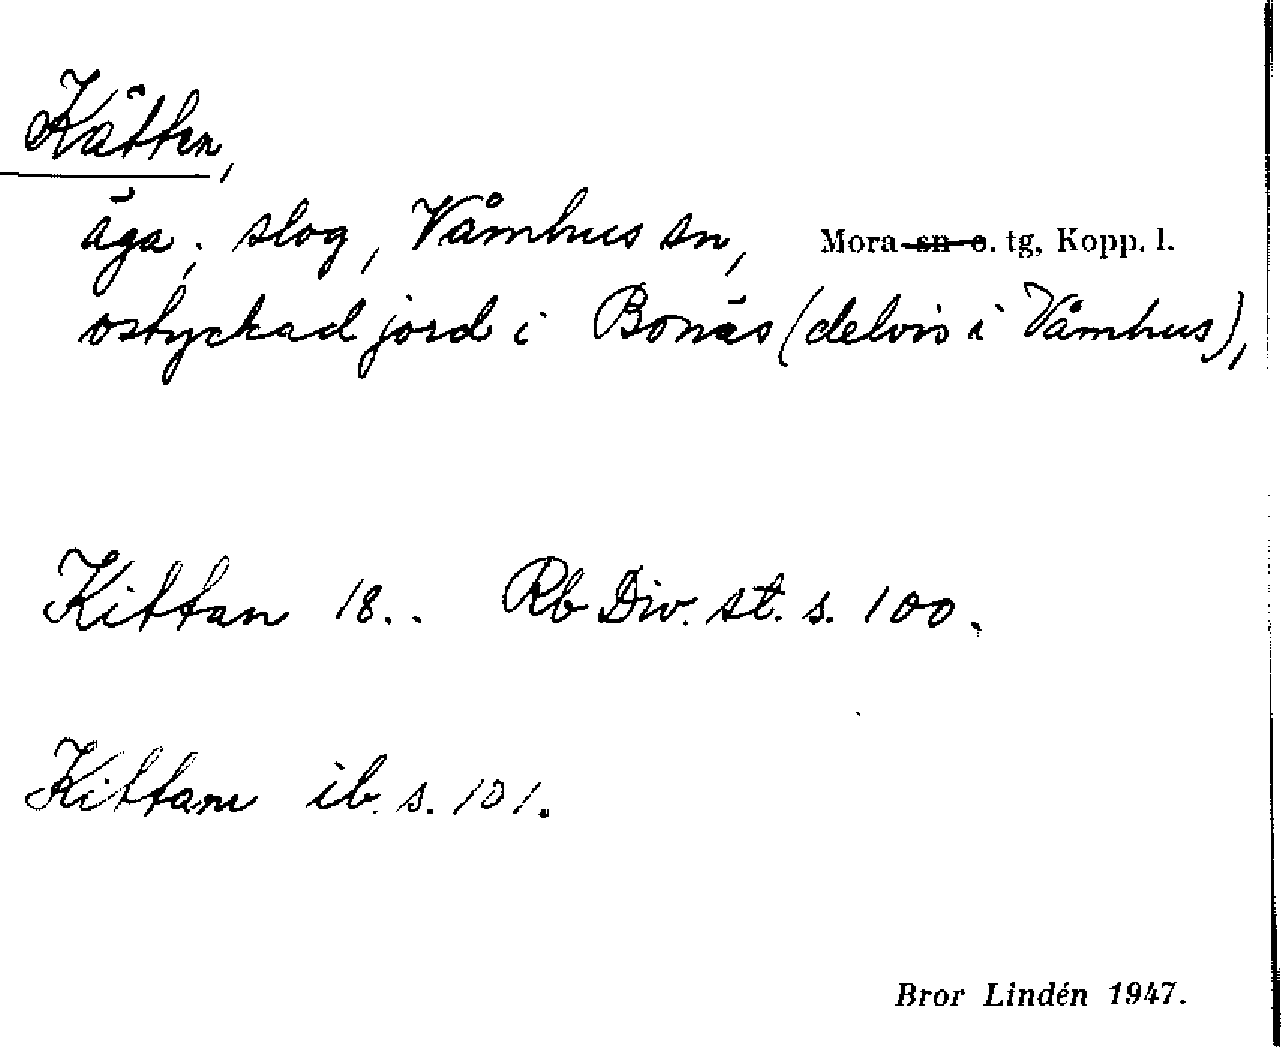 Kätten,
äga; slog, Våmhus sn, Mora sn o. tg, Kopp. l.
ostyckad jord i Bonäs (delvis i Våmhus),
Kittan 18.. Rb Div. st. s. 100.
Kittam ib. s. 101.
Bror Lindén 1947.